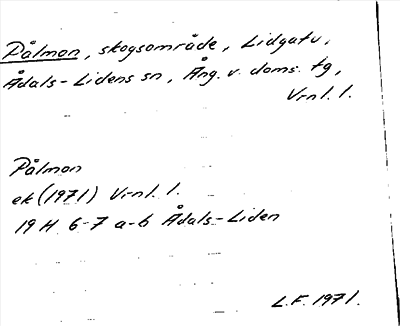 Pålmon, skogsområde, Lidgatu,
Ådals-Lidens sn, Ång. v. doms. tg,
Vrnl. l.
Pålmon
ek (1971) Vrnl. l.
19 H 6-7 a-b Ådals-Liden
L.F. 1971.